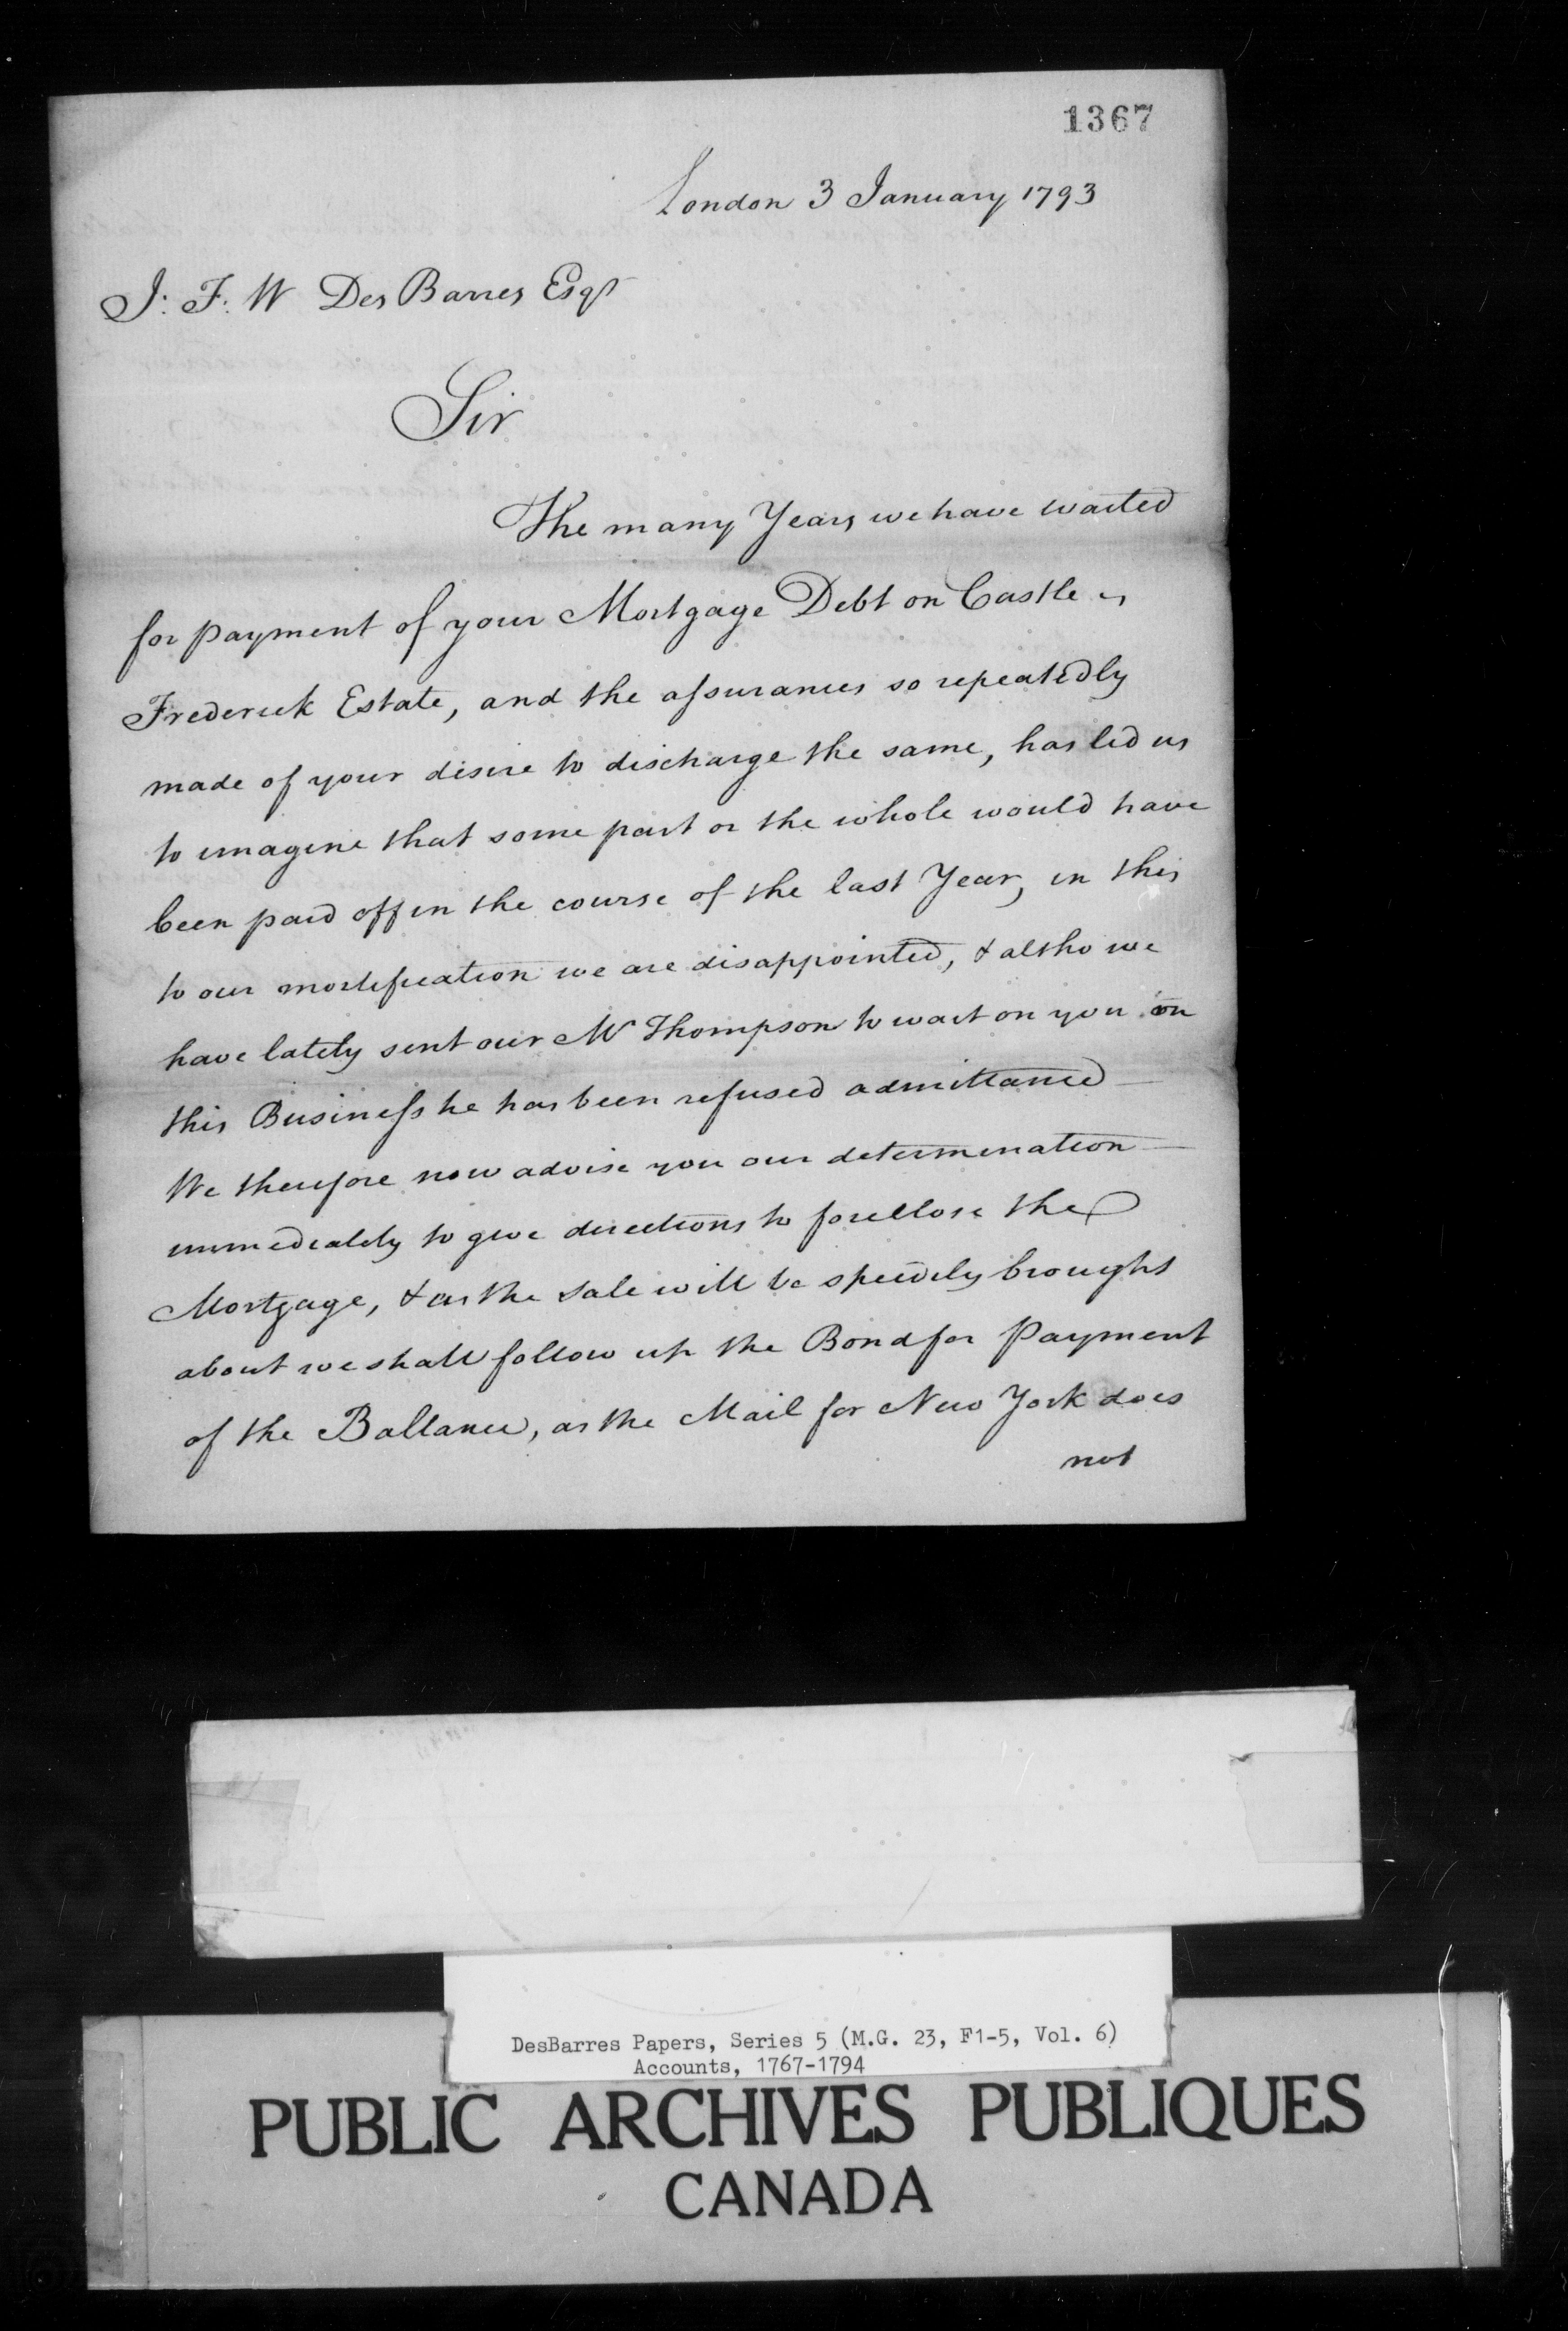 1367
London 3 January 1793
J: F: W Des Barres Esqr
Sir
The many Years we have waited
for payment of your Mortgage Debt on Castle
Frederick Estate, and the assurances so repeatedly
made of your desire to discharge the same, has led us
to imagine that some part or the whole would have
been paid off in the course of the last Year, in this
to our mortification we are disappointed, & altho we
have lately sent our Mr Thompson to wait on you on
this Business he has been refused admittance
We therefore now advise you our determination
immediately to give directions to foreclose the
Mortgage, & as the Sale will be speedily brought
about we shall follow up the Bond for Payment
of the Ballance, as the Mail for New York does
not
DesBarres Papers, Series 5 (M.G. 23, F1-5, Vol. 6)
Accounts, 1767-1794
PUBLIC ARCHIVES PUBLIQUES
CANADA